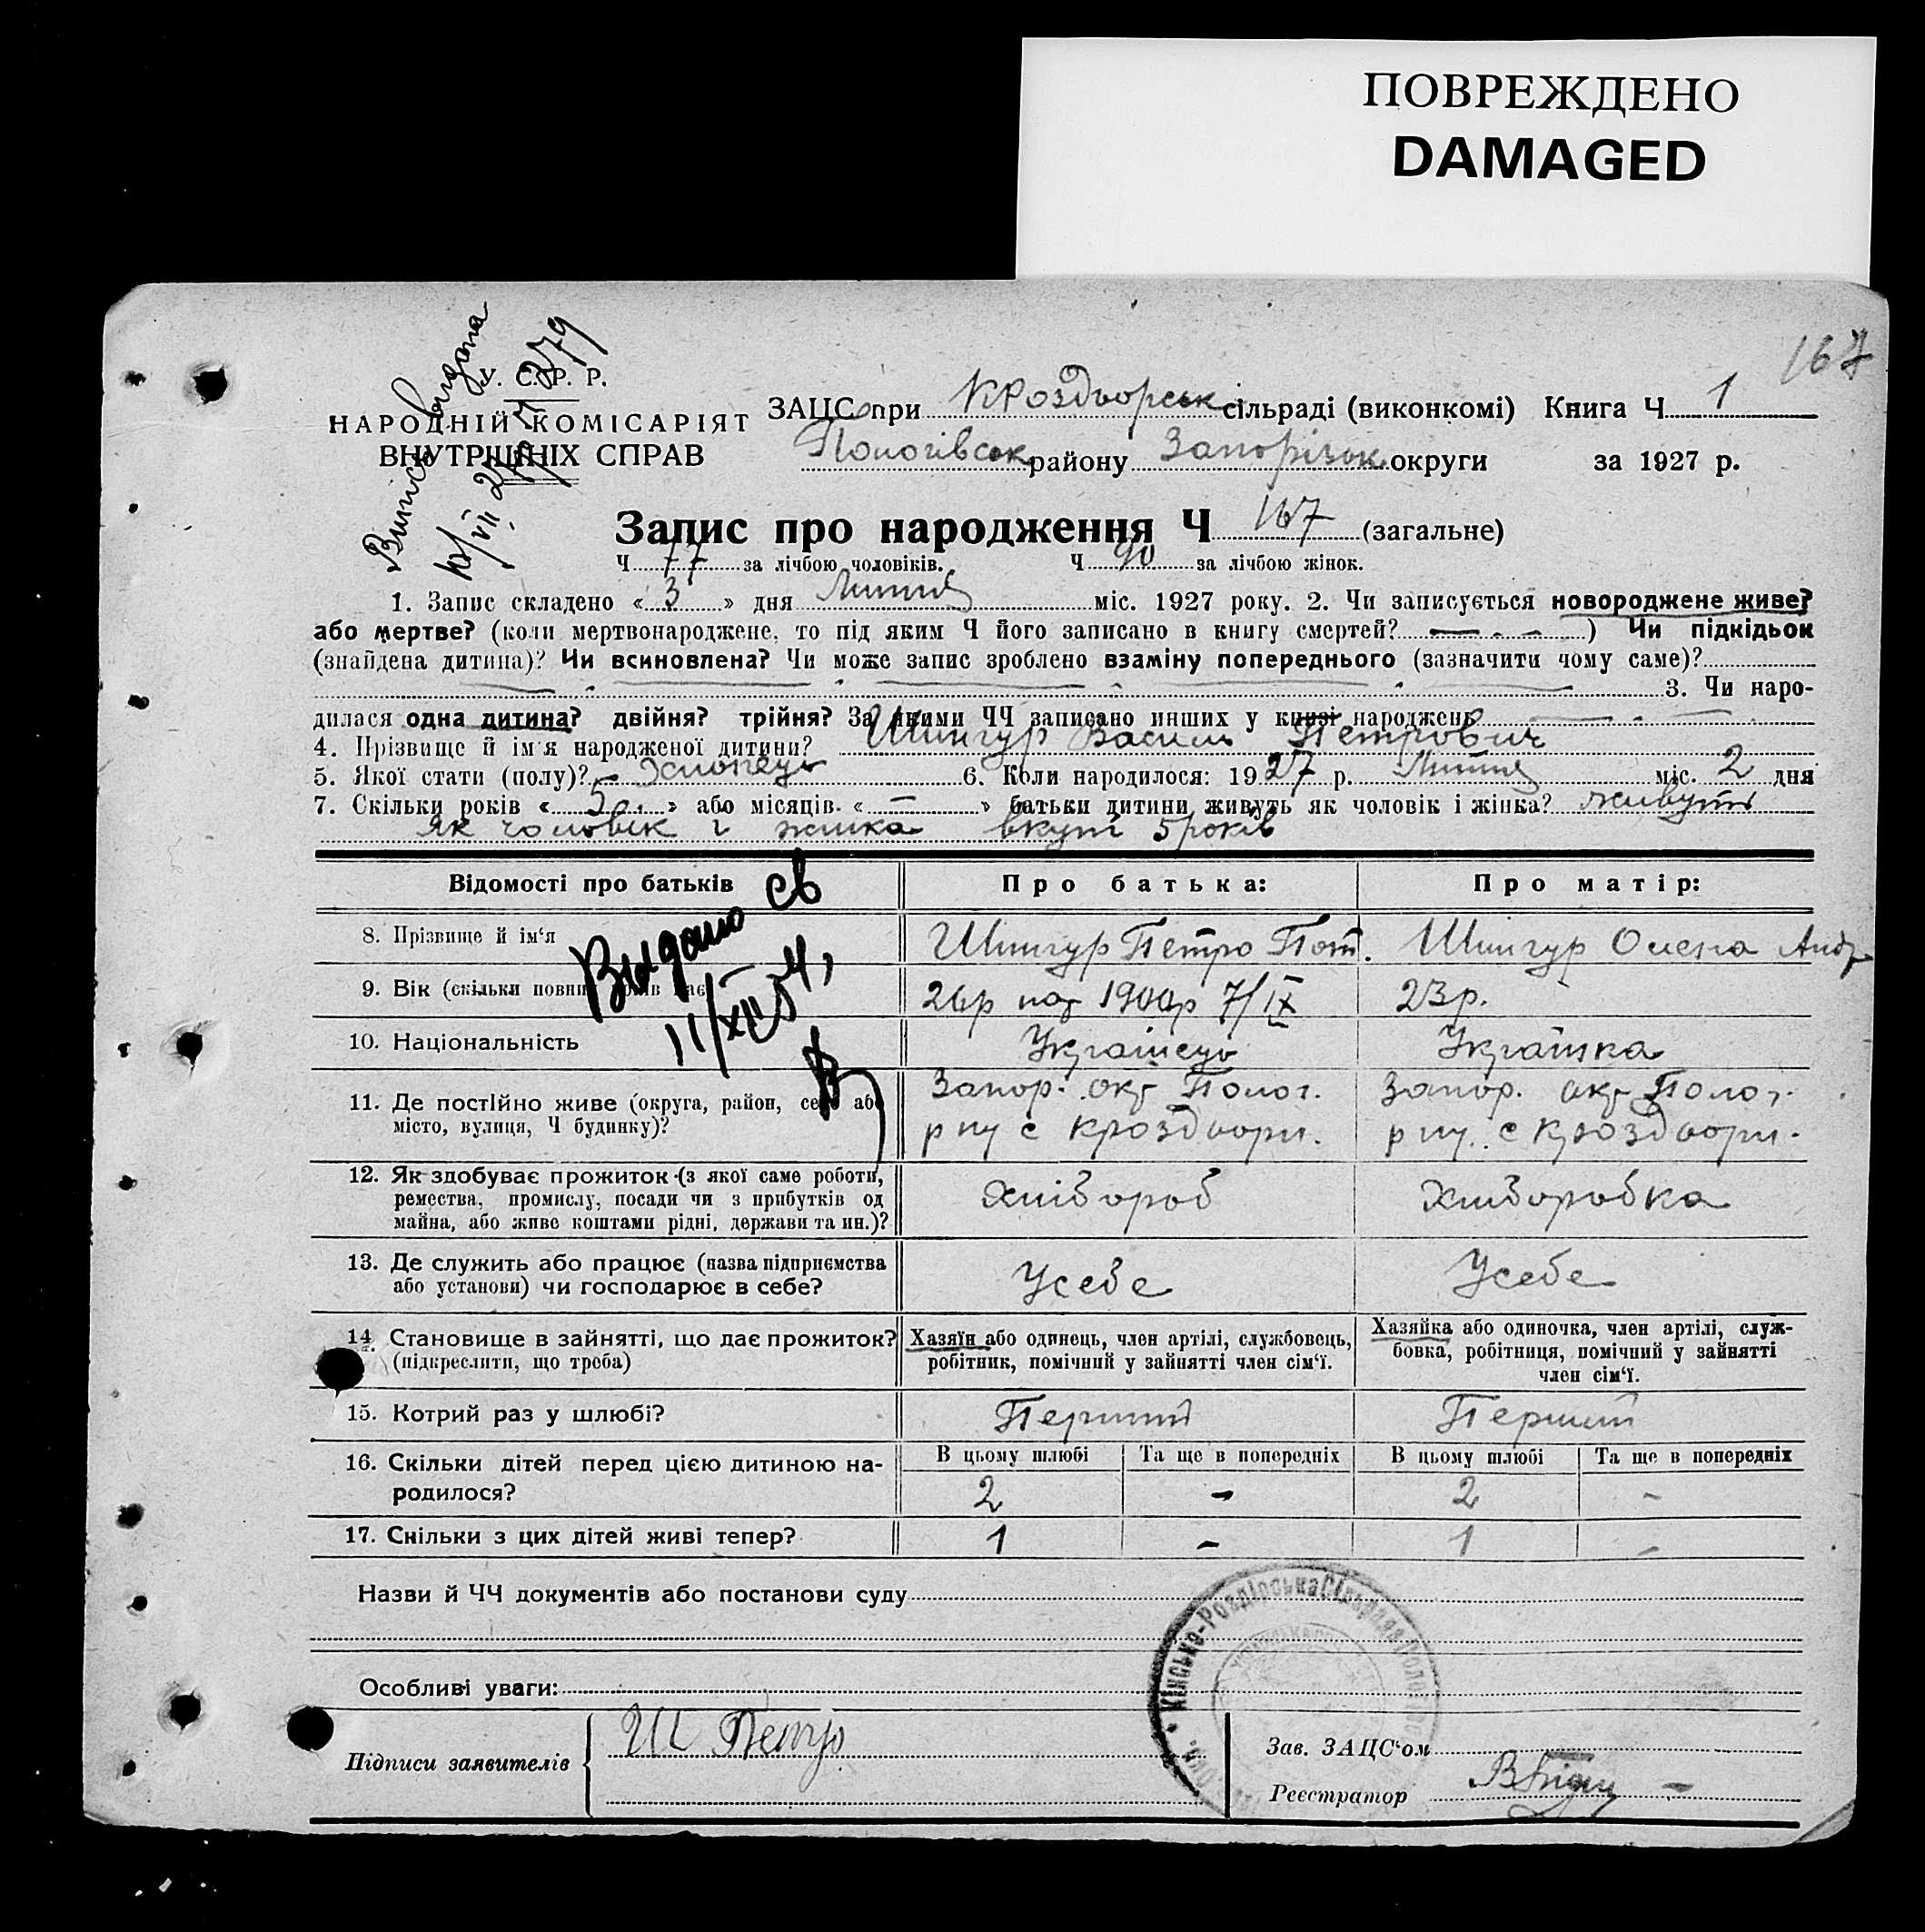 ПОВРЕЖДЕНО
DAMAGED
167
Випись видана
У. С. Р. Р.
НАРОДНІЙ КОМІСАРІЯТ
ВНУТРІШНІХ СПРАВ
ЗАЦС при К Роздворськ сільраді (виконкомі) Книга Ч 1
Пологівськ району Запорізьк округи за 1927 р.
Запис про народження Ч 167 (загальне)
Ч 77 за лічбою чоловіків. Ч 90 за лічбою жінок.
1. Запис складено « 3 » дня Липня міс. 1927 року. 2. Чи записується новороджене живе?
або мертве? (коли мертвонароджене, то під яким Ч його записано в книгу смертей? — - - ) Чи підкідьок
(знайдена дитина)? Чи всиновлена? Чи може запис зроблено взаміну попереднього (зазначити чому саме)?
3. Чи наро-
дилася одна дитина? двійня? трійня? За якими ЧЧ записано инших у книзі народжень
4. Прізвище й ім'я народженої дитини? Шингур Василь Петрович
5. Якої стати (полу)? Хлопець 6. Коли народилося: 1927 р. Липня міс. 2 дня
7. Скільки років « 5 » або місяців « — » батьки дитини живуть як чоловік і жінка? живуть
як чоловік і жинка вкупі 5 років
Відомості про батьків Про батька: Про матір:
Выдано св
11/XII 54,
8. Прізвище й ім'я Шингур Петро Пот. Шингур Олена Андр
9. Вік (скільки повних років має 26р 1900р 7/IX 23р.
10. Національність Українець Українка
11. Де постійно живе (округа, район, село або Запор. окр Полог. Запор. окр Полог.
місто, вулиця, Ч будинку)? р ну с Кроздвори. р ну. с Кроздвори.
12. Як здобуває прожиток (з якої саме роботи,
ремества, промислу, посади чи з прибутків од Хлібороб Хліборобка
майна, або живе коштами рідні, держави та ин.)?
13. Де служить або працює (назва підприємства
або установи) чи господарює в себе? Усебе Усебе
14. Становище в зайнятті, що дає прожиток? Хазяїн або одинець, член артілі, службовець, Хазяйка або одиночка, член артілі, служ-
(підкреслити, що треба) робітник, помічний у зайнятті член сім'ї. бовка, робітниця, помічний у зайнятті
член сім'ї.
15. Котрий раз у шлюбі? Перший Перший
16. Скільки дітей перед цією дитиною на- В цьому шлюбі Та ще в попередніх В цьому шлюбі Та ще в попередніх
родилося? 2 - 2 -
17. Скільки з цих дітей живі тепер? 1 - 1 -
Назви й ЧЧ документів або постанови суду
Кінсько-Роздорська Сільрада
Особливі уваги:
Підписи заявителів Ш Петро
Зав. ЗАЦС'ом
Реєстратор